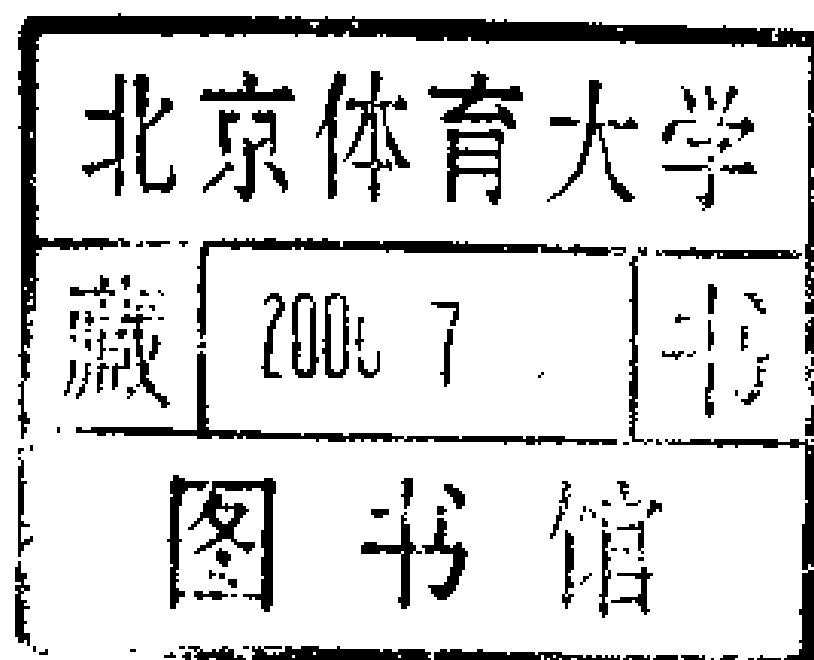 北京体育大学
藏 200 7 书
图书馆